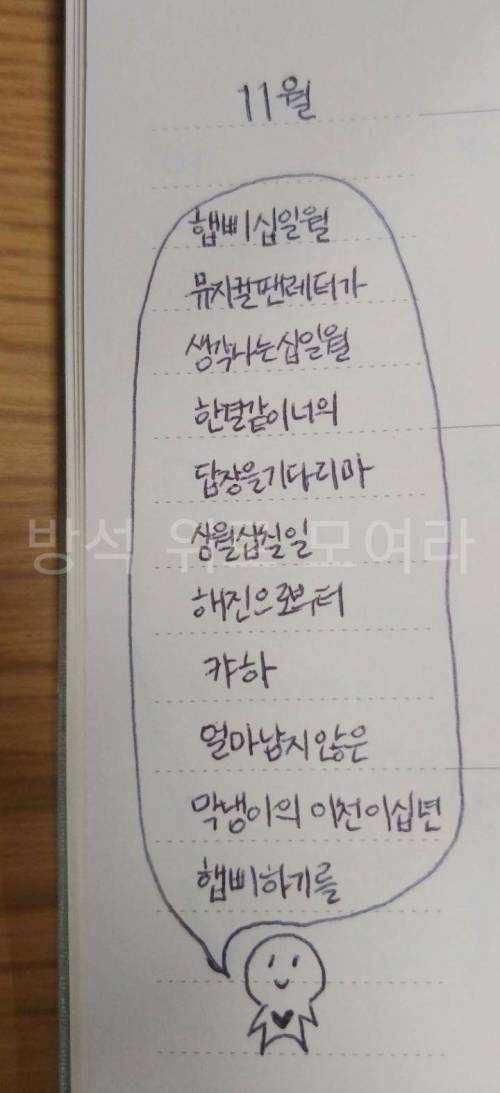 11월
햅삐십일월
뮤지컬팬레터가
생각나는십일월
한결같이너의
답장을기다리마
삼월삽실일
해진으로부터
캬하
얼마냠지않은
막냉이의 이천이십년
햅삐하기를
방석 위 모여라